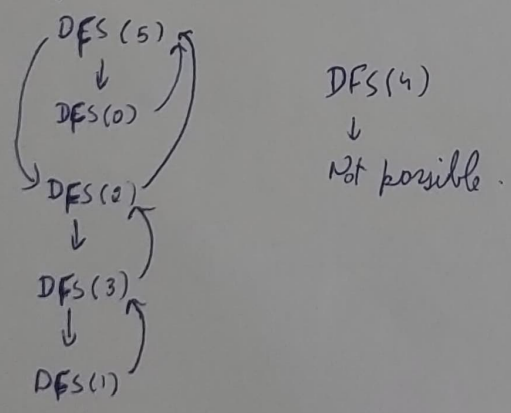 DFS(5)
DFS(0)
DFS(2)
DFS(3)
DFS(1)
DFS(4)
Not possible.